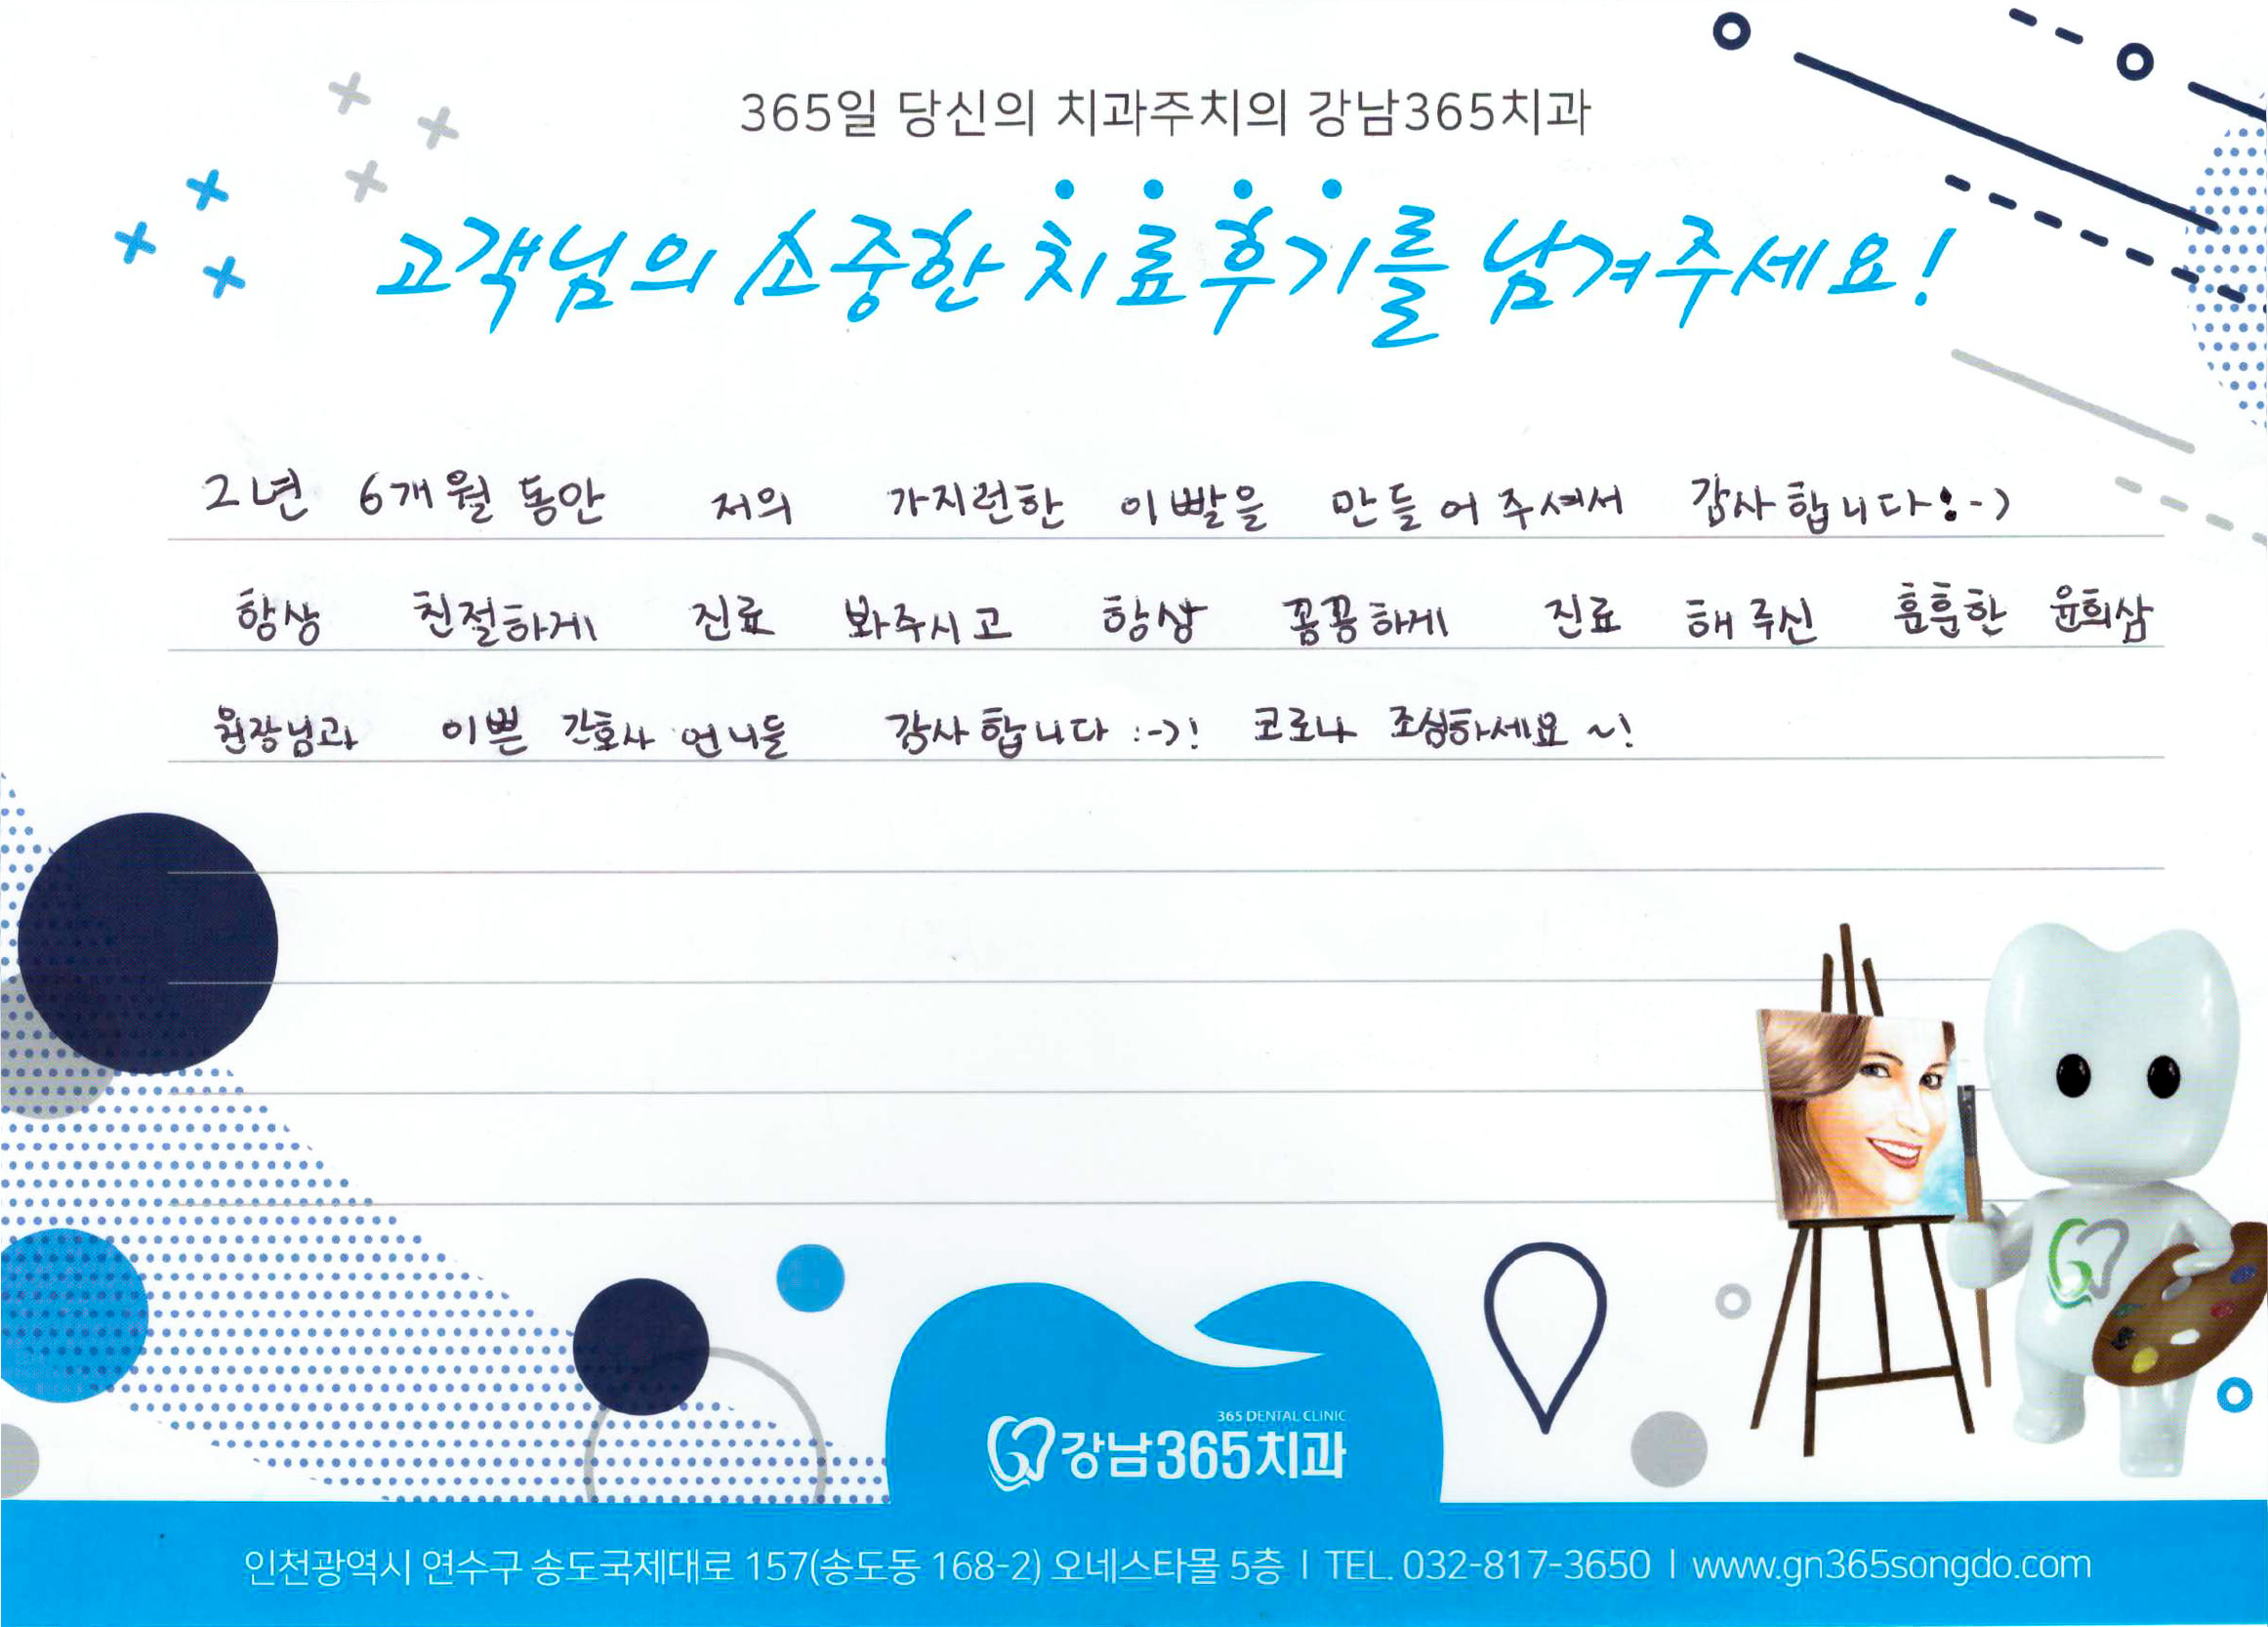 365일 당신의 치과주치의 강남365치과
고객님의 소중한 치료후기를 남겨주세요!
2년 6개월 동안 저의 가지런한 이빨을 만들어 주셔서 감사합니다!:-)
항상 친절하게 진료 봐주시고 항상 꼼꼼하게 진료 해주신 훈훈한 윤희삼
원장님과 이쁜 간호사 언니들 감사합니다 :->! 코로나 조심하세요~!
365 DENTAL CLINIC
강남365치과
인천광역시 연수구 송도국제대로 157(송도동 168-2) 오네스타몰 5층 | TEL. 032-817-3650 | www.gn365songdo.com